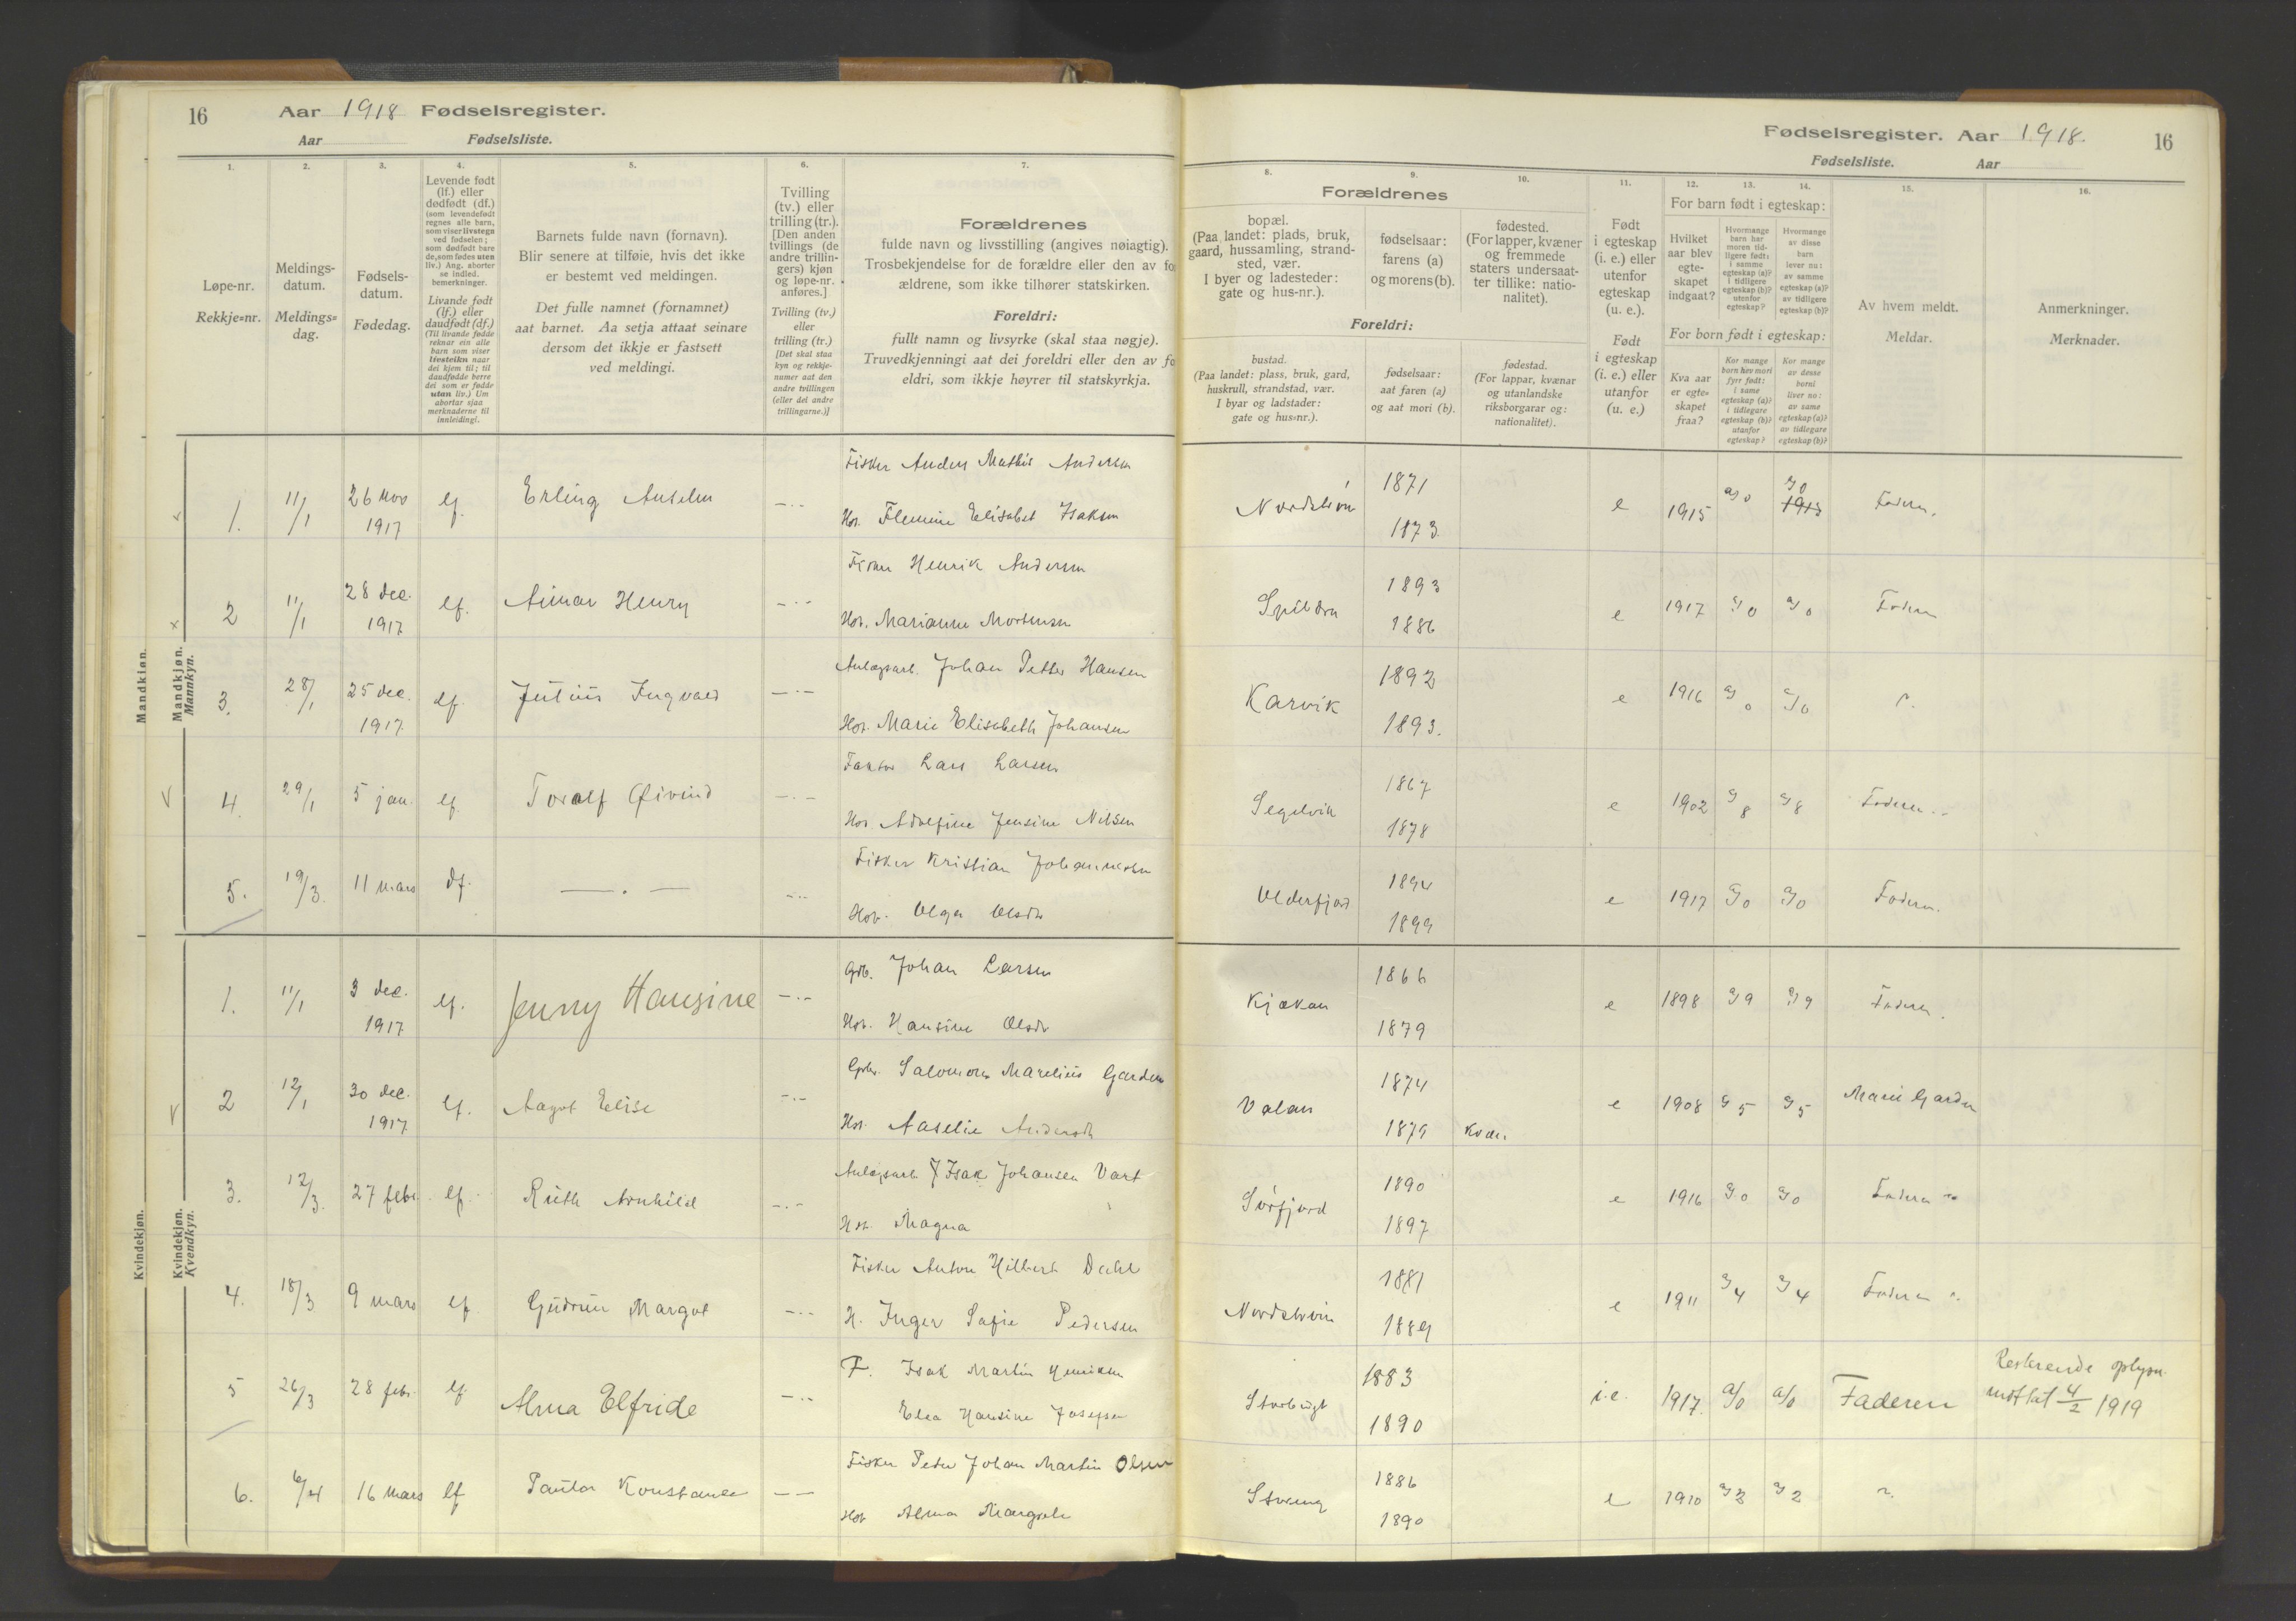 16 Aar 1918 Fødselsregister.
Aar Fødselsliste.
1. 2. 3. 4. 5. 6. 7.
Løpe-nr.
Rekkje=nr.
Meldings-
datum.
Meldings=
dag.
Fødsels-
datum.
Fødedag.
Levende født
(lf.) eller
dødfødt (df.)
(som levendefødt
regnes alle barn,
som viser livstegn
ved fødselen;
som dødfødt bare
de, som fødes uten
liv.) Ang. aborter
se indled.
bemerkninger.
Livande født
(lf.) eller
daudfødt (df.)
(Til livande fødde
reknar ein alle
barn som viser
livsteikn naar
dei kjem til; til
daudfødde berre
dei som er fødde
utan liv.) Um
abortar sjaa
merknaderne til
innleidingi.
Barnets fulde navn (fornavn).
Blir senere at tilføie, hvis det ikke
er bestemt ved meldingen.
Det fulle namnet (fornamnet)
aat barnet. Aa setja attaat seinare
dersom det ikkje er fastsett
ved meldingi.
Tvilling
(tv.) eller
trilling (tr.).
[Den anden
tvillings (de
andre trillin-
gers) kjøn
og løpe-nr.
anføres.]
Tvilling (tv.)
eller
trilling (tr.)
[Det skal staa
kyn og rekkje-
numer aat den
andre tvillingen
(eller dei andre
trillingarne.)]
Forældrenes
fulde navn og livsstilling (angives nøiagtig).
Trosbekjendelse for de forældre eller den av fo
ældrene, som ikke tilhører statskirken.
Foreldri:
fullt namn og livsyrke (skal staa nøgje).
Truvedkjenningi aat dei foreldri eller den av fo
eldri, som ikkje høyrer til statskyrkja.
Mandkjøn.
Mandkjøn.
Mannkyn.
1. 11/1 26 nov 1917 lf. Erling Anselm
Fisker Anders Mathis Andersen
Hst. Flemine Elisabet Isaksen
2 11/1 28 dec. 1917 lf. Aimar Henry
Fisker Henrik Andersen
Hst. Marianne Mortensen
3. 28/1 25 dec. 1917. lf. Julius Ingvald
Anlægsarb. Johan Petter Hansen
Hst. Marie Elisabeth Johansen
4. 29/1 5 jan. lf. Toralf Øivind
Faktor Lars Larsen
Hst. Adolfine Jensine Nilsen
5. 19/3. 11 mars df.
Fisker Kristian Johannesen
Hst. Olga Olsdtr
Kvindekjøn.
Kvindekjøn.
Kvendkyn.
1. 11/1 3 dec. 1917 lf. Jenny Hansine
Gdb. Johan Larsen
Hst. Hansine Olsdtr
2 12/1 30 dec. 1917. lf. Aagot Elise
Gbr. Salomon Marelius Garden
Hst. Aaselie Andersdtr
3. 12/3. 27 febr. lf. Ruth Arnhild
Anlægsarb. Isak Johansen Vart
Hst. Magna
4. 18/3 9 mars lf. Gudrun Margot
Fisker Anton Hilbert Dahl
H. Inger Sofie Pedersen
5 26/3 28 febr. lf. Alma Elfride
F. Isak Martin Henriksen
Elea Hansine Josefsen
6. 6/4 16 mars lf Paula Konstanse
Fisker Peder Johan Martin Olsen
Hst Alma Margrete
Fødselsregister. Aar 1918. 16
Fødselsliste. Aar
8. 9. 10. 11. 12. 13. 14. 15. 16.
Forældrenes
bopæl.
(Paa landet: plads, bruk,
gaard, hussamling, strand-
sted, vær.
I byer og ladesteder:
gate og hus-nr.).
fødselsaar:
farens (a)
og morens (b).
fødested.
(For lapper, kvæner
og fremmede
staters undersaat-
ter tillike: natio-
nalitet).
Foreldri:
bustad.
(Paa landet: plass, bruk, gard,
huskrull, strandstad, vær.
I byar og ladstader:
gate og hus=nr.).
fødselsaar:
aat faren (a)
og aat mori (b).
fødestad.
(For lappar, kvænar
og utanlandske
riksborgarar og:
nationalitet).
Født
i egteskap
(i. e.) eller
utenfor
egteskap
(u. e.).
Født
i egteskap
(i. e.) eller
utanfor
(u. e.)
For barn født i egteskap:
Hvilket
aar blev
egte-
skapet
indgaat?
Hvormange
barn har
moren tid-
ligere født:
i samme
egteskap (a)?
i tidligere
egteskap (b)?
utenfor
egteskap?
Hvormange
av disse
barn
lever nu:
av samme
egteskap (a)?
av tidligere
egteskap (b)?
For born født i egteskap:
Kva aar
er egte=
skapet
fraa?
Kor mange
born hev mori
fyrr født:
i same
egteskap (a)?
i tidlegare
egteskap (b)?
utanfor
egteskap?
Kor mange
av desse
borni
liver no:
av same
egteskap (a)?
av tidlegare
egteskap (b)?
Av hvem meldt.
Meldar.
Anmerkninger.
Merknader.
1871
1873. e 1915 a) 0 a) 0 Faderen.
1893
1886 e 1917 a) 0 a) 0 Faderen
Karvik 1892
1893. e 1916 a) 0 a) 0
Segelvik 1867
1878 e 1902 a) 8 a) 8 Faderen.
Olderfjord 1894
1899 e 1917 a) 0 a) 0 Faderen.
Kjækan 1866
1879 e 1898 a) 9 a) 9 Faderen.
Valan 1874
1879 Kvæn. e 1908 a) 5 a) 5 Marie Garden
Sørfjord 1890
1897 e 1916 a) 0 a) 0 Faderen
1881
1889 e 1911 a) 4 a) 4 Faderen
Storbugt 1883
1890 i.e. 1917. a/0 a/0 Faderen Resterende oplysn.
mottat 4/2 1919
1886
1890 e 1910 a) 2 a) 2